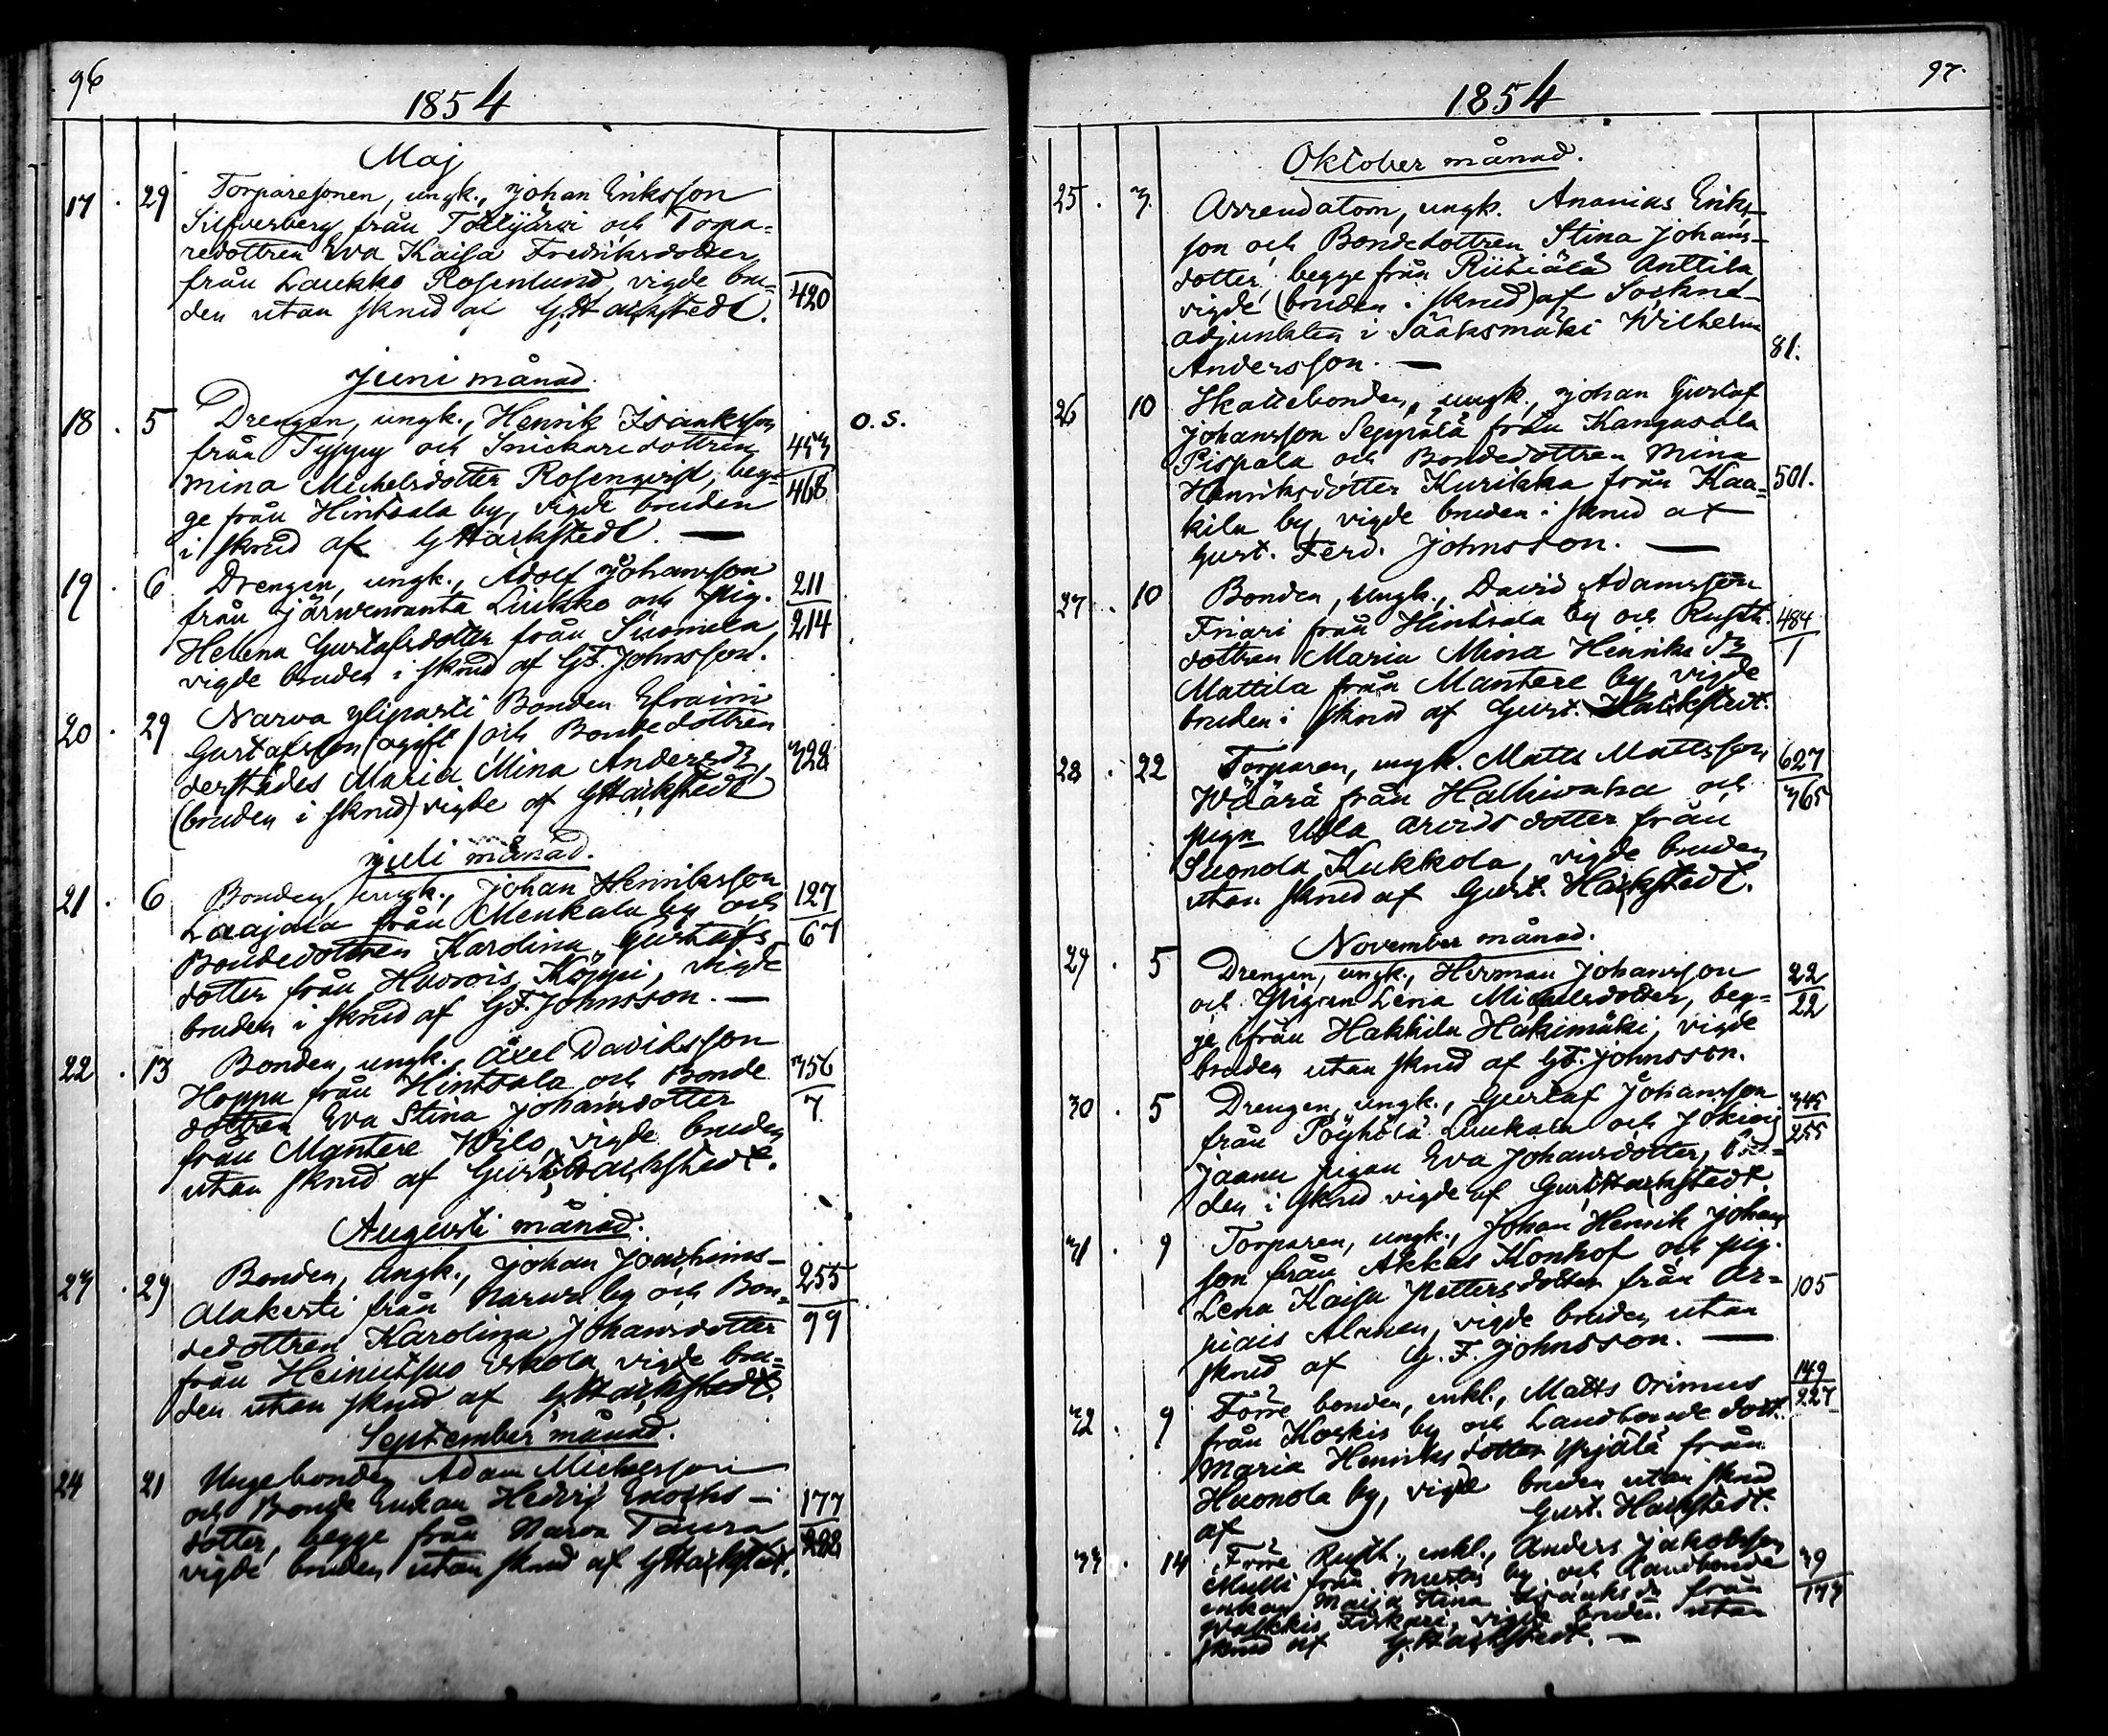 96
1854
Maj
17 . 29 Torparesonen, ungk., Johan Eriksson
Silfverberg från Tottijärvi och Torpa=
redottren Eva Kaisa Fredriksdotter
från Laukko Rosenlund, vigde bru=
den utan skrud af G. Harkstedt. 420
Juni månad.
18 . 5 Drengen, ungk., Henrik Isaaksson o. s.
från Typpy och Snickaredottren 453
Mina Michelsdotter Rosenqvist, beg= 468
ge från Hintsala by, vigde bruden
i skrud af G Harkstedt. —
19 . 6 Drengen, ungk., Adolf Johansson 211
från Järvenranta Liukko och pig. 214
Helena Gustafsdotter från Suomela,
vigde bruden i skrud af G.F. Johnsson.
20 . 29 Narva yliparti Bonden Efraim
Gustafsson (ogift) och Bondedottren
derstädes Maria Mina Andersdr, 328
(bruden i skrud) vigde af G Harkstedt
Juli månad.
21 . 6 Bonden, ungk., Johan Henriksson 127
Laajala från Menkala by och 67
Bondedottren Karolina Gustafs
dotter från Huovis Köppi, vigde
bruden i skrud af G.F. Johnsson. —
22 . 13 Bonden, ungk., Axel Davidsson 356
Hoppu från Hintsala och Bonde 7
dottren Eva Stina Johansdotter
från Mantere Wilo, vigde bruden
utan skrud af Gust. Harkstedt.
Augusti månad.
23 . 29 Bonden, ungk., Johan Joachims— 255
Alakerti från Narva by och Bon= 99
dedottren Karolina Johansdotter
från Heinitsuo Eskola, vigde bru=
den utan skrud af G. Harkstedt.
September månad.
24 21 Unge bonden Adam Michelsson
och Bonde Enkan Hedvig Enochs— 177
dotter, begge från Narva Taura 222
vigde bruden utan skrud af G Harkstedt.
97.
1854
Oktober månad.
25 . 3 Arrendatorn, ungk. Ananias Eriks—
son och Bondedottren Stina Johans—
dotter, begge från Riitiälä Anttila
vigde (bruden i skrud) af Sockne—
adjunkten i Sääksmäki Wilhelm
Andersson. — 81.
26 10 Skattebonden, ungk., Johan Gustaf
Johansson Seppälä från Kangasala
Pispala och Bondedottren Mina
Henriksdotter Kurikka från Kaa= 501.
kila by, vigde bruden i skrud af
Gust. Ferd. Johnsson. —
27 . 10 Bonden, ungk., David Adamsson
Friari från Hintsala by och Rusth. 484
dottren Maria Mina Henriks dr 1
Mattila från Mantere by, vigde
bruden i skrud af Gust. Harkstedt.
28 . 22 Torparen, ungk. Matts Mattsson 627
Wäärä från Halkivaha och 365
pign Ulla Arvidsdotter från
Suonola Kukkola, vigde bruden
utan skrud af Gust. Harkstedt.
November månad.
29 . 5 Drengen, ungk., Herman Johansson 22
och Pigan Lena Michelsdotter, beg= 22
ge från Hakkila Hakimäki, vigde
bruden utan skrud af G.F. Johnsson.
30 . 5 Drengen, ungk., Gustaf Johansson 345
från Pöyhölä Luukala och Jokiois 255
Jaanu pigan Eva Johansdotter, bru=
den i skrud vigde af Gust. Harkstedt.
31 . 9 Torparen, ungk., Johan Henrik Johans
son från Akkas Konhof och pig.
Lena Kaisa Pettersdotter från Ar= 105
piais Alanen, vigde bruden utan
skrud af G. F. Johnsson. —
32 . 9 Förre bonden, enkl., Matts Orimus 149
från Koskis by och Landbonde dott. 227
Maria Henriksdotter Yrjälä från
Huonola by, vigde bruden utan skrud
af Gust. Harkstedt.
33 . 14 Förre Rusth., enkl., Anders Jakobsson 39
Mulli från by och Landbonde 177
enkan Maja Stina Isaaks dr från
Walkkis Fiskari, vigde bruden utan
skrud af G. Harkstedt. —